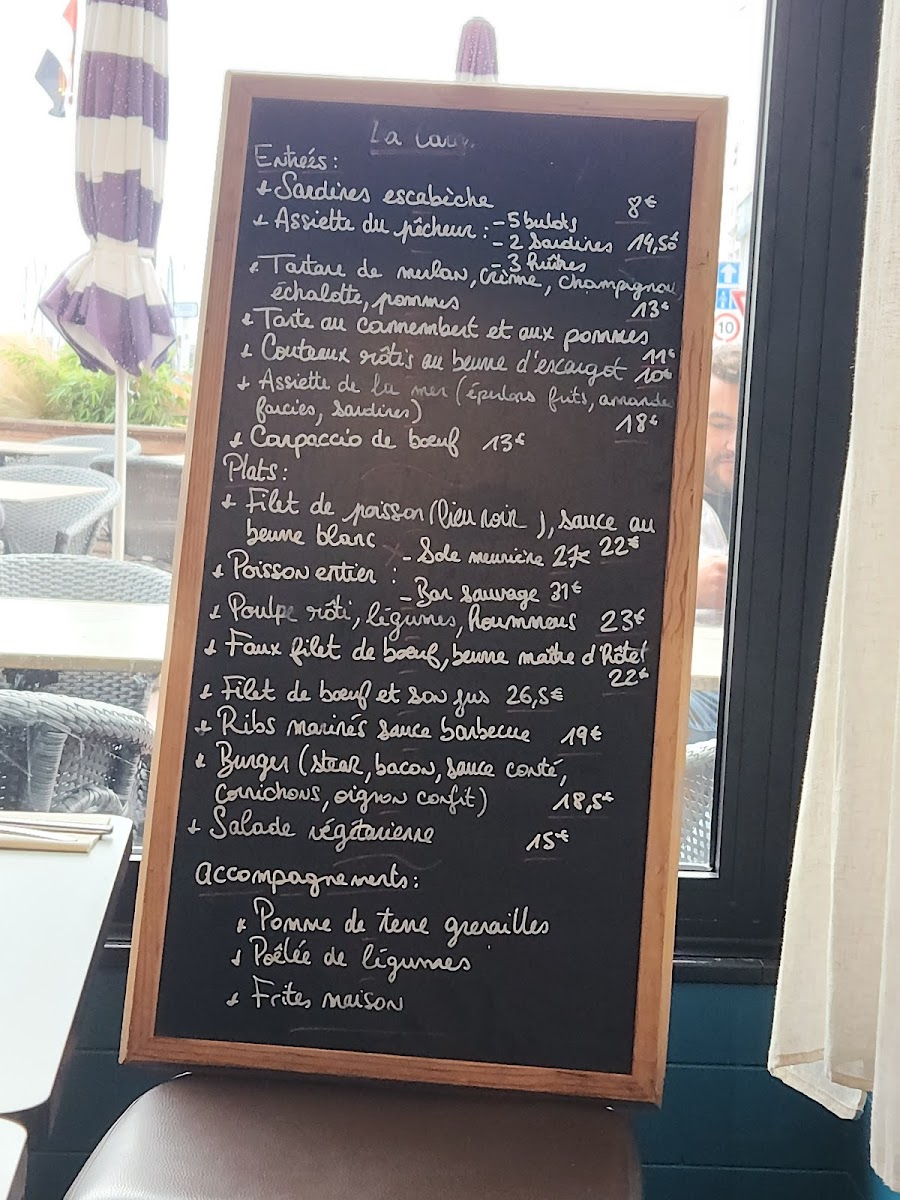 La Car
Entrées:
Sardines escabèche 8€
Assiette du pêcheur : - 5 bulots
- 2 Sardines 14,50€
- 3 huîtres
Tartare de merlan, crème, champignon,
échalotte, pommes 13€
Tarte au camembert et aux pommes
11€
Couteaux rôtis au beurre d'escargot 10€
Assiette de la mer (éperlans frits, amandes
farcies, sardines) 18€
Carpaccio de bœuf 13€
Plats:
Filet de poisson (lieu noir), sauce au
beurre blanc 22€
- Sole meunière 27€
Poisson entier :
- Bar sauvage 31€
Poulpe rôti, légumes, hoummous 23€
Faux filet de bœuf, beurre maître d'hôtel
22€
Filet de bœuf et son jus 26,5€
Ribs marinés sauce barbecue 19€
Burger (steak, bacon, sauce conté,
cornichons, oignon confit) 18,5€
Salade végétarienne 15€
Accompagnements:
Pomme de terre grenailles
Poêlée de légumes
Frites maison
10